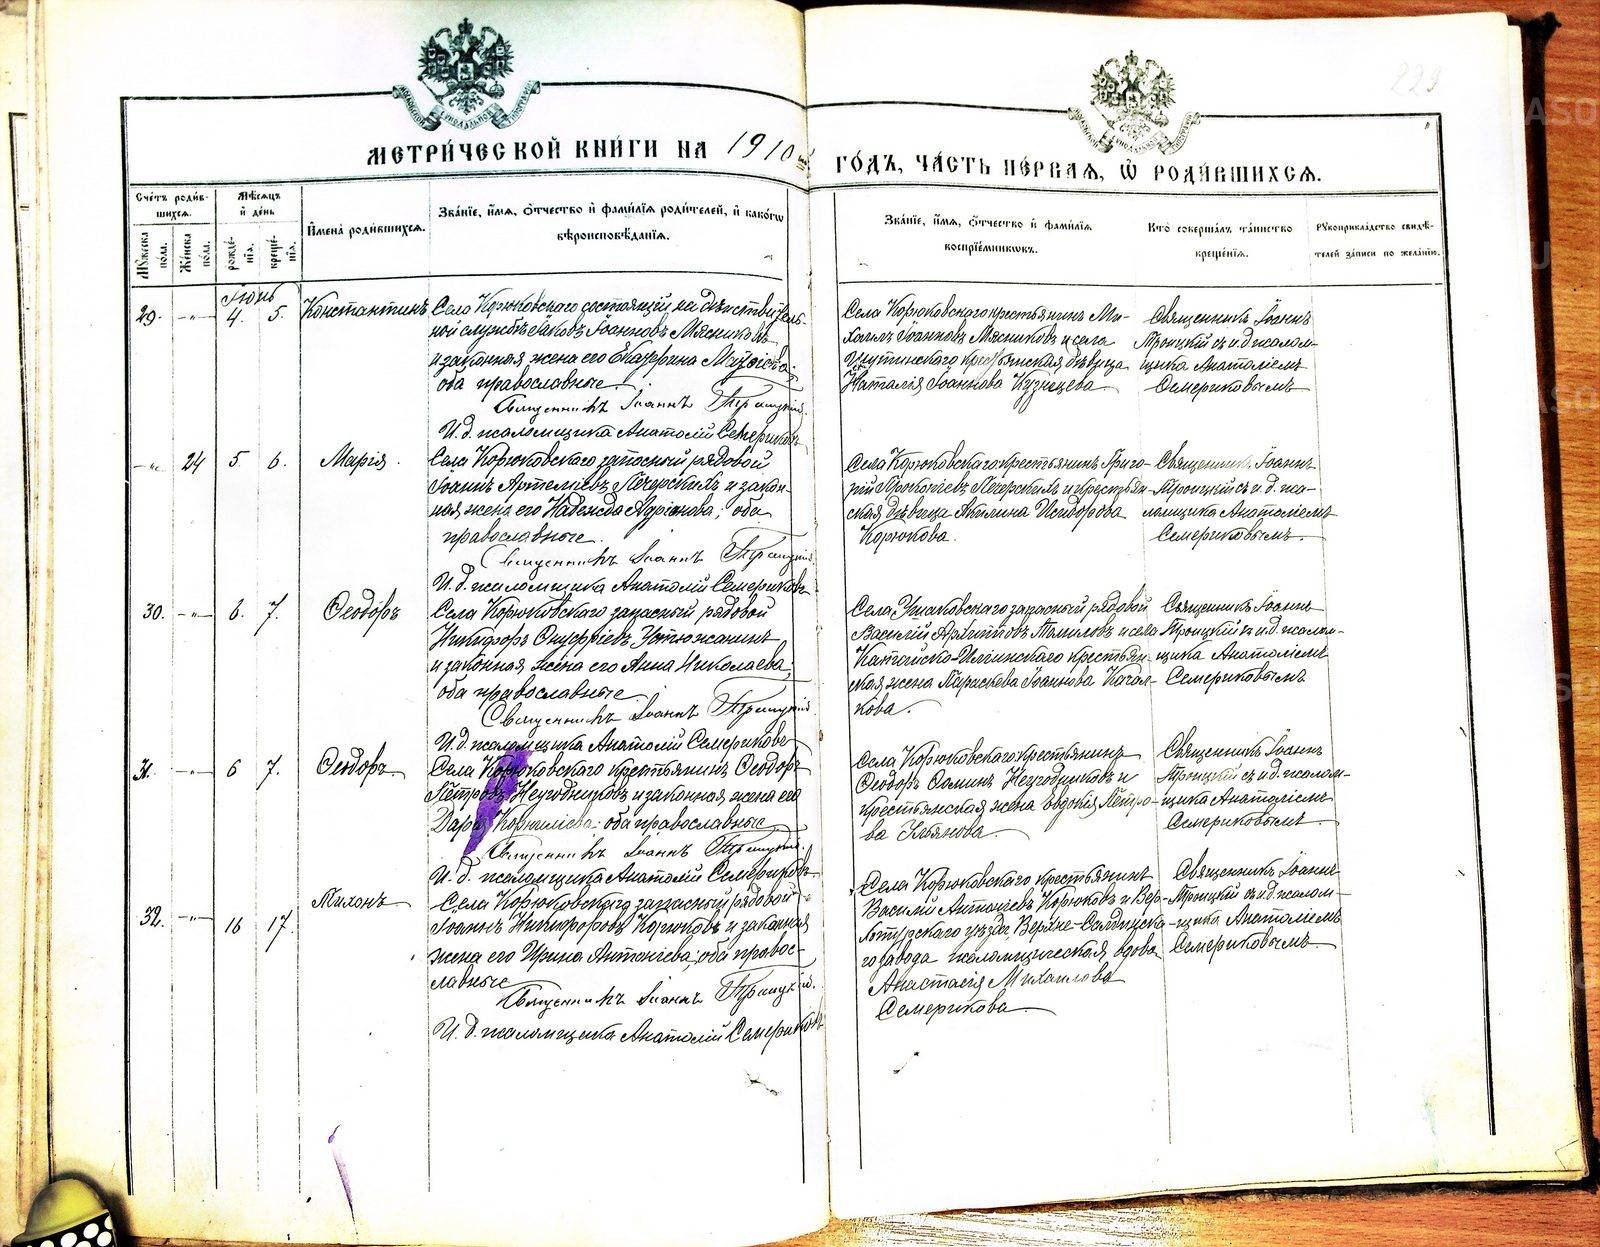 229
МЕТРИ́ЧЕСКОЙ КНИ́ГИ НА 1910 ГО́ДЪ, ЧА́СТЬ ПЕ́РВАЯ, Ѿ РОДИ́ВШИХСЯ.
Сче́тъ роди́в-
шихся.
Мѣ́сяцъ
и҆ де́нь
Мꙋ́жеска по́ла.
Же́нска по́ла.
рожде́-
нїѧ.
креще́-
нїѧ.
И҆мена̀ роди́вшихся.
Зва́нїе, и҆́мѧ, ѻ҆́тчество и҆ фами́лїѧ роди́телей, и҆ како́гѡ
вѣроисповѣ́данїѧ.
Зва́нїе, и҆́мѧ, ѻ҆́тчество и҆ фами́лїѧ
воспрїе́мникѡвъ.
Кто̀ соверша́лъ та́инство
креще́нїѧ.
Рꙋкоприкла́дство свидѣ́-
телей за́писи по жела́нїю.
Іюнь
29. -„- 4. 5. Константинъ
Села Корюковскаго состоящій на дѣйствитель-
ной службѣ Іаковъ Іоанновъ Мясниковъ
и законная жена его Екатерина
оба православные.
Священникъ Іоаннъ Троицкій.
И. д. псаломщика Анатолій Семериковъ
Села Корюковскаго крестьянинъ Ми-
хаилъ Іоанновъ Мясниковъ и села
крестьянская дѣвица
Наталія Іоаннова Кузнецова
Священникъ Іоаннъ
Троицкій съ и. д. псалом-
щика Анатоліемъ
Семериковымъ
-„- 24 5. 6. Марія.
Села Корюковскаго запасный рядовой
Іоаннъ Артемьевъ Печерскихъ и закон-
ная жена его Надежда Адріанова; оба
православные.
Священникъ Іоаннъ Троицкій.
И. д. псаломщика Анатолій Семериковъ
Села Корюковскаго крестьянинъ Григо-
рій Прокопіевъ Печерскихъ и крестьян-
ская дѣвица Исидорова
Корюкова.
Священникъ Іоаннъ
Троицкій съ и. д. пса-
ломщика Анатоліемъ
Семериковымъ.
30. -„- 6. 7. Ѳеодоръ
Села Корюковскаго запасный рядовой
Никифоръ Онуфріевъ Утюжанинъ
и законная жена его Анна Николаева;
оба православные
Священникъ Іоаннъ Троицкій.
И. д. псаломщика Анатолій Семериковъ
Села Ушаковскаго запасный рядовой
Василій Архиповъ Томиловъ и села
Катайско-Ильинскаго крестьян-
ская жена Параскева Іоаннова Качал-
кова.
Священникъ Іоаннъ
Троицкій съ и. д. псалом-
щика Анатоліемъ
Семериковымъ
31. -„- 6 7. Ѳеодоръ
Села Корюковскаго крестьянинъ Ѳеодоръ
Петровъ Неугодниковъ и законная жена его
Дарія Корниліева; оба православные
Священникъ Іоаннъ Троицкій.
И. д. псаломщика Анатолій Семериковъ
Села Корюковскаго крестьянинъ
Ѳеодоръ Ѳоминъ Неугодниковъ и
крестьянская жена Евдокія Петро-
ва Ульянова.
Священникъ Іоаннъ
Троицкій съ и. д. псалом-
щика Анатоліемъ
Семериковымъ.
32. -„- 16 17. Тихонъ
Села Корюковскаго запасный рядовой
Іоаннъ Никифоровъ Корюковъ и законная
жена его Ирина Антоніева; оба правос-
лавные
Священникъ Іоаннъ Троицкій.
И. д. псаломщика Анатолій Семериковъ
Села Корюковскаго крестьянинъ
Василій Антоніевъ Корюковъ и Вер-
хотурскаго уѣзда, Верхне-Салдинска-
го завода псаломщическая вдова
Анастасія Михаилова
Семерикова.
Священникъ Іоаннъ
Троицкій съ и. д. псалом-
щика Анатоліемъ
Семериковымъ.